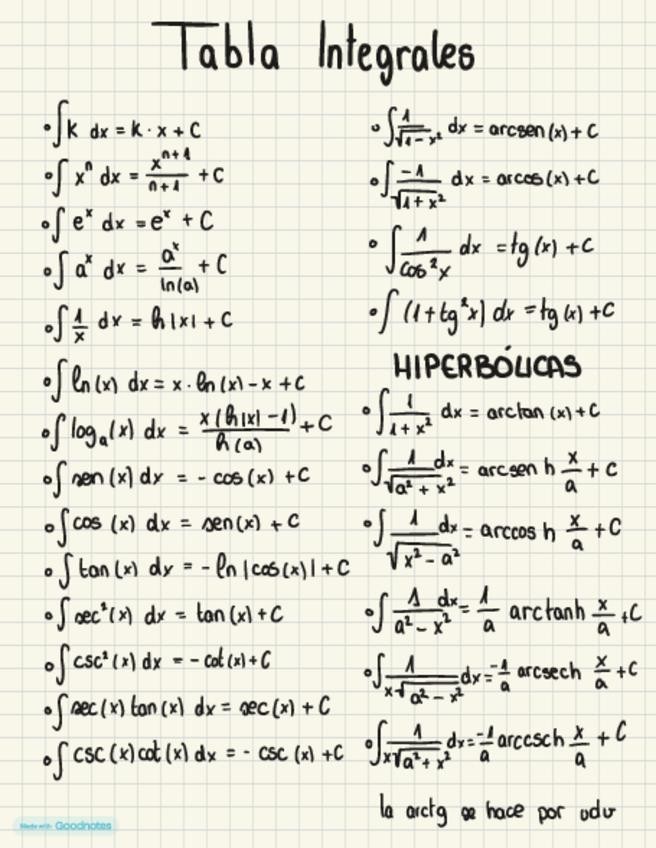 Tabla Integrales
• ∫ k dx = k · x + C
• ∫ xⁿ dx = xⁿ⁺¹/n+1 + C
• ∫ eˣ dx = eˣ + C
• ∫ aˣ dx = aˣ/ln(a) + C
• ∫ 1/x dx = ln|x| + C
• ∫ ln(x) dx = x · ln(x) - x + C
• ∫ logₐ(x) dx = x(ln|x| - 1)/ln(a) + C
• ∫ sen(x) dx = - cos(x) + C
• ∫ cos(x) dx = sen(x) + C
• ∫ tan(x) dx = - ln|cos(x)| + C
• ∫ sec²(x) dx = tan(x) + C
• ∫ csc²(x) dx = - cot(x) + C
• ∫ sec(x) tan(x) dx = sec(x) + C
• ∫ csc(x) cot(x) dx = - csc(x) + C
• ∫ 1/√(1-x²) dx = arcsen(x) + C
• ∫ -1/√(1+x²) dx = arcos(x) + C
• ∫ 1/cos²x dx = tg(x) + C
• ∫ (1+tg²x) dx = tg(x) + C
HIPERBÓLICAS
• ∫ 1/1+x² dx = arctan(x) + C
• ∫ 1/√(a²+x²) dx = arcsen h x/a + C
• ∫ 1/√(x²-a²) dx = arccos h x/a + C
• ∫ 1/a²-x² dx = 1/a arctanh x/a + C
• ∫ 1/x√(a²-x²) dx = -1/a arcsech x/a + C
• ∫ 1/x√(a²+x²) dx = -1/a arccsch x/a + C
la arctg se hace por udv
Made with Goodnotes